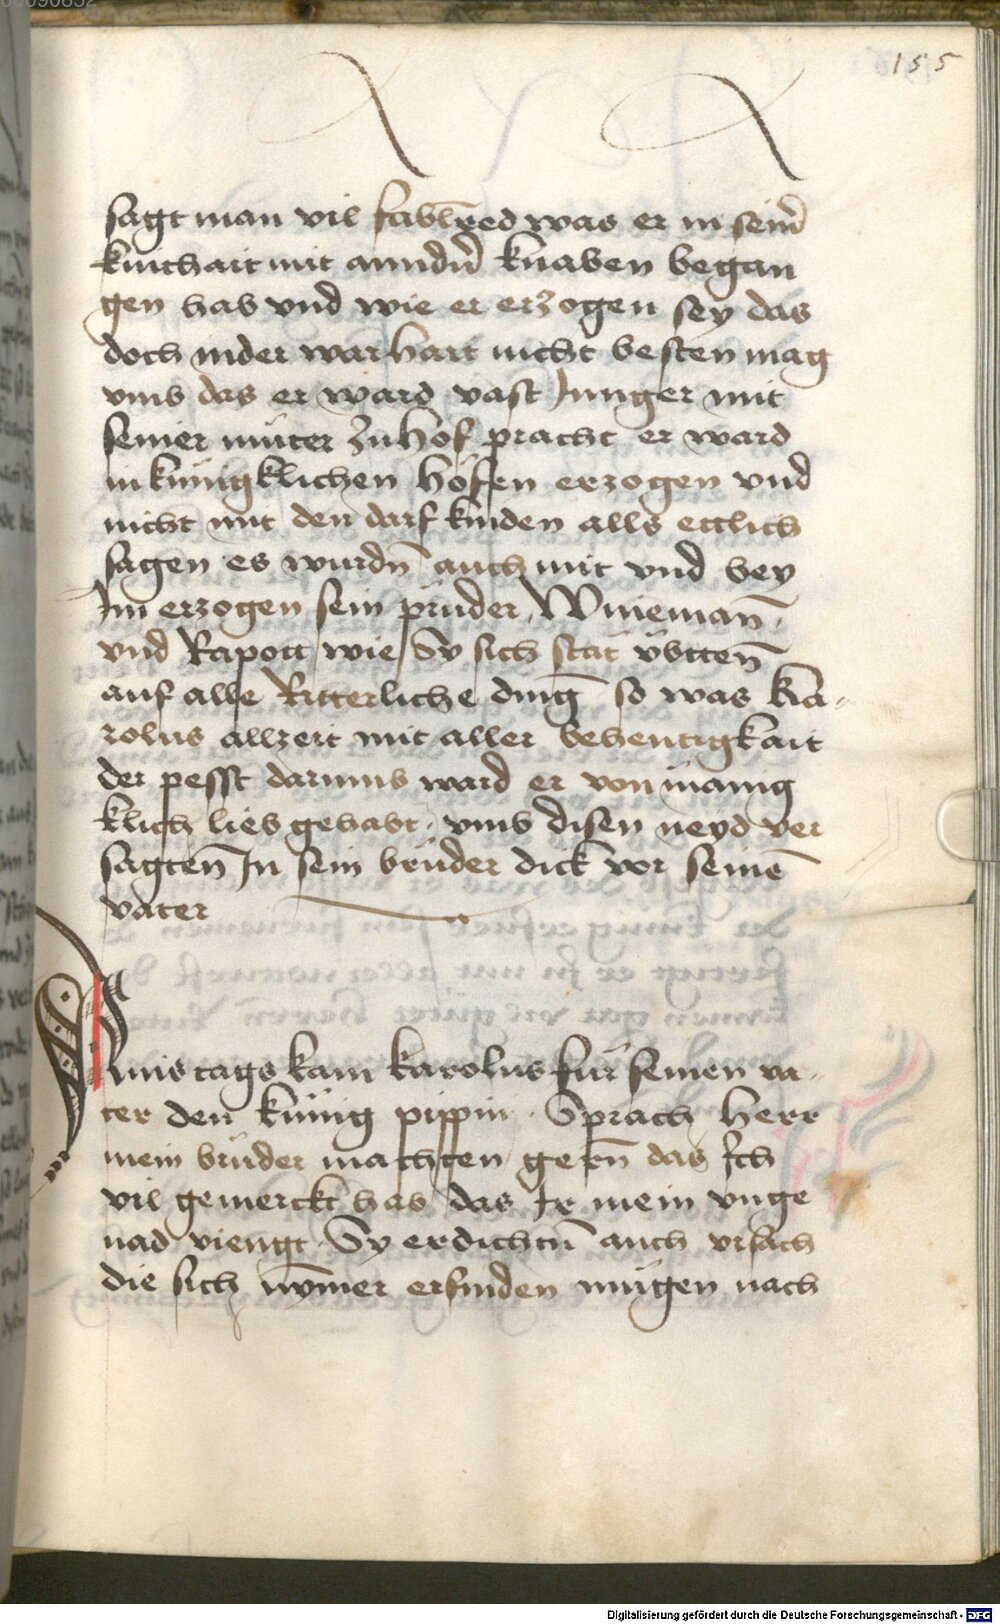 155
sagt man vil fablred was er in seinr̄
kinthait mit anndrn̄ knaben began
gen hab vnd wie er erzogen sey das
doch inder warhait nicht besten mag
vmb das er ward vast Junger mit
seiner mŭter zu hof pracht er ward
in kŭnigklichen höfen erzogen vnd
nicht mit den dorf kinden alls ettlich
sagen es wurdn̄ auch mit vnd bey
Jm erzogen sein prüder Winemann̄
vnd Rapott wie Sy sich stät übttenn̄
auf alle Ritterliche ding so was Ka-
rolus allzeit mit aller behentigkait
der pesst darumb ward er von mänig
klich lieb gehabt · vmb disen neyd ver
sagtenn̄ Jn sein brüder dick vor seinē
vater
Ainis tags kam karolus für seinen va-
ter den kŭnig pippin · Sprach herr
mein brüder machten gern̄ das Jch
vil gemerckt hab das Jr mein vnge
nad viengt · Sy erdichtn̄ auch vrsach
die sich nymer erfinden mügen nach
Digitalisierung gefördert durch die Deutsche Forschungsgemeinschaft - DFG